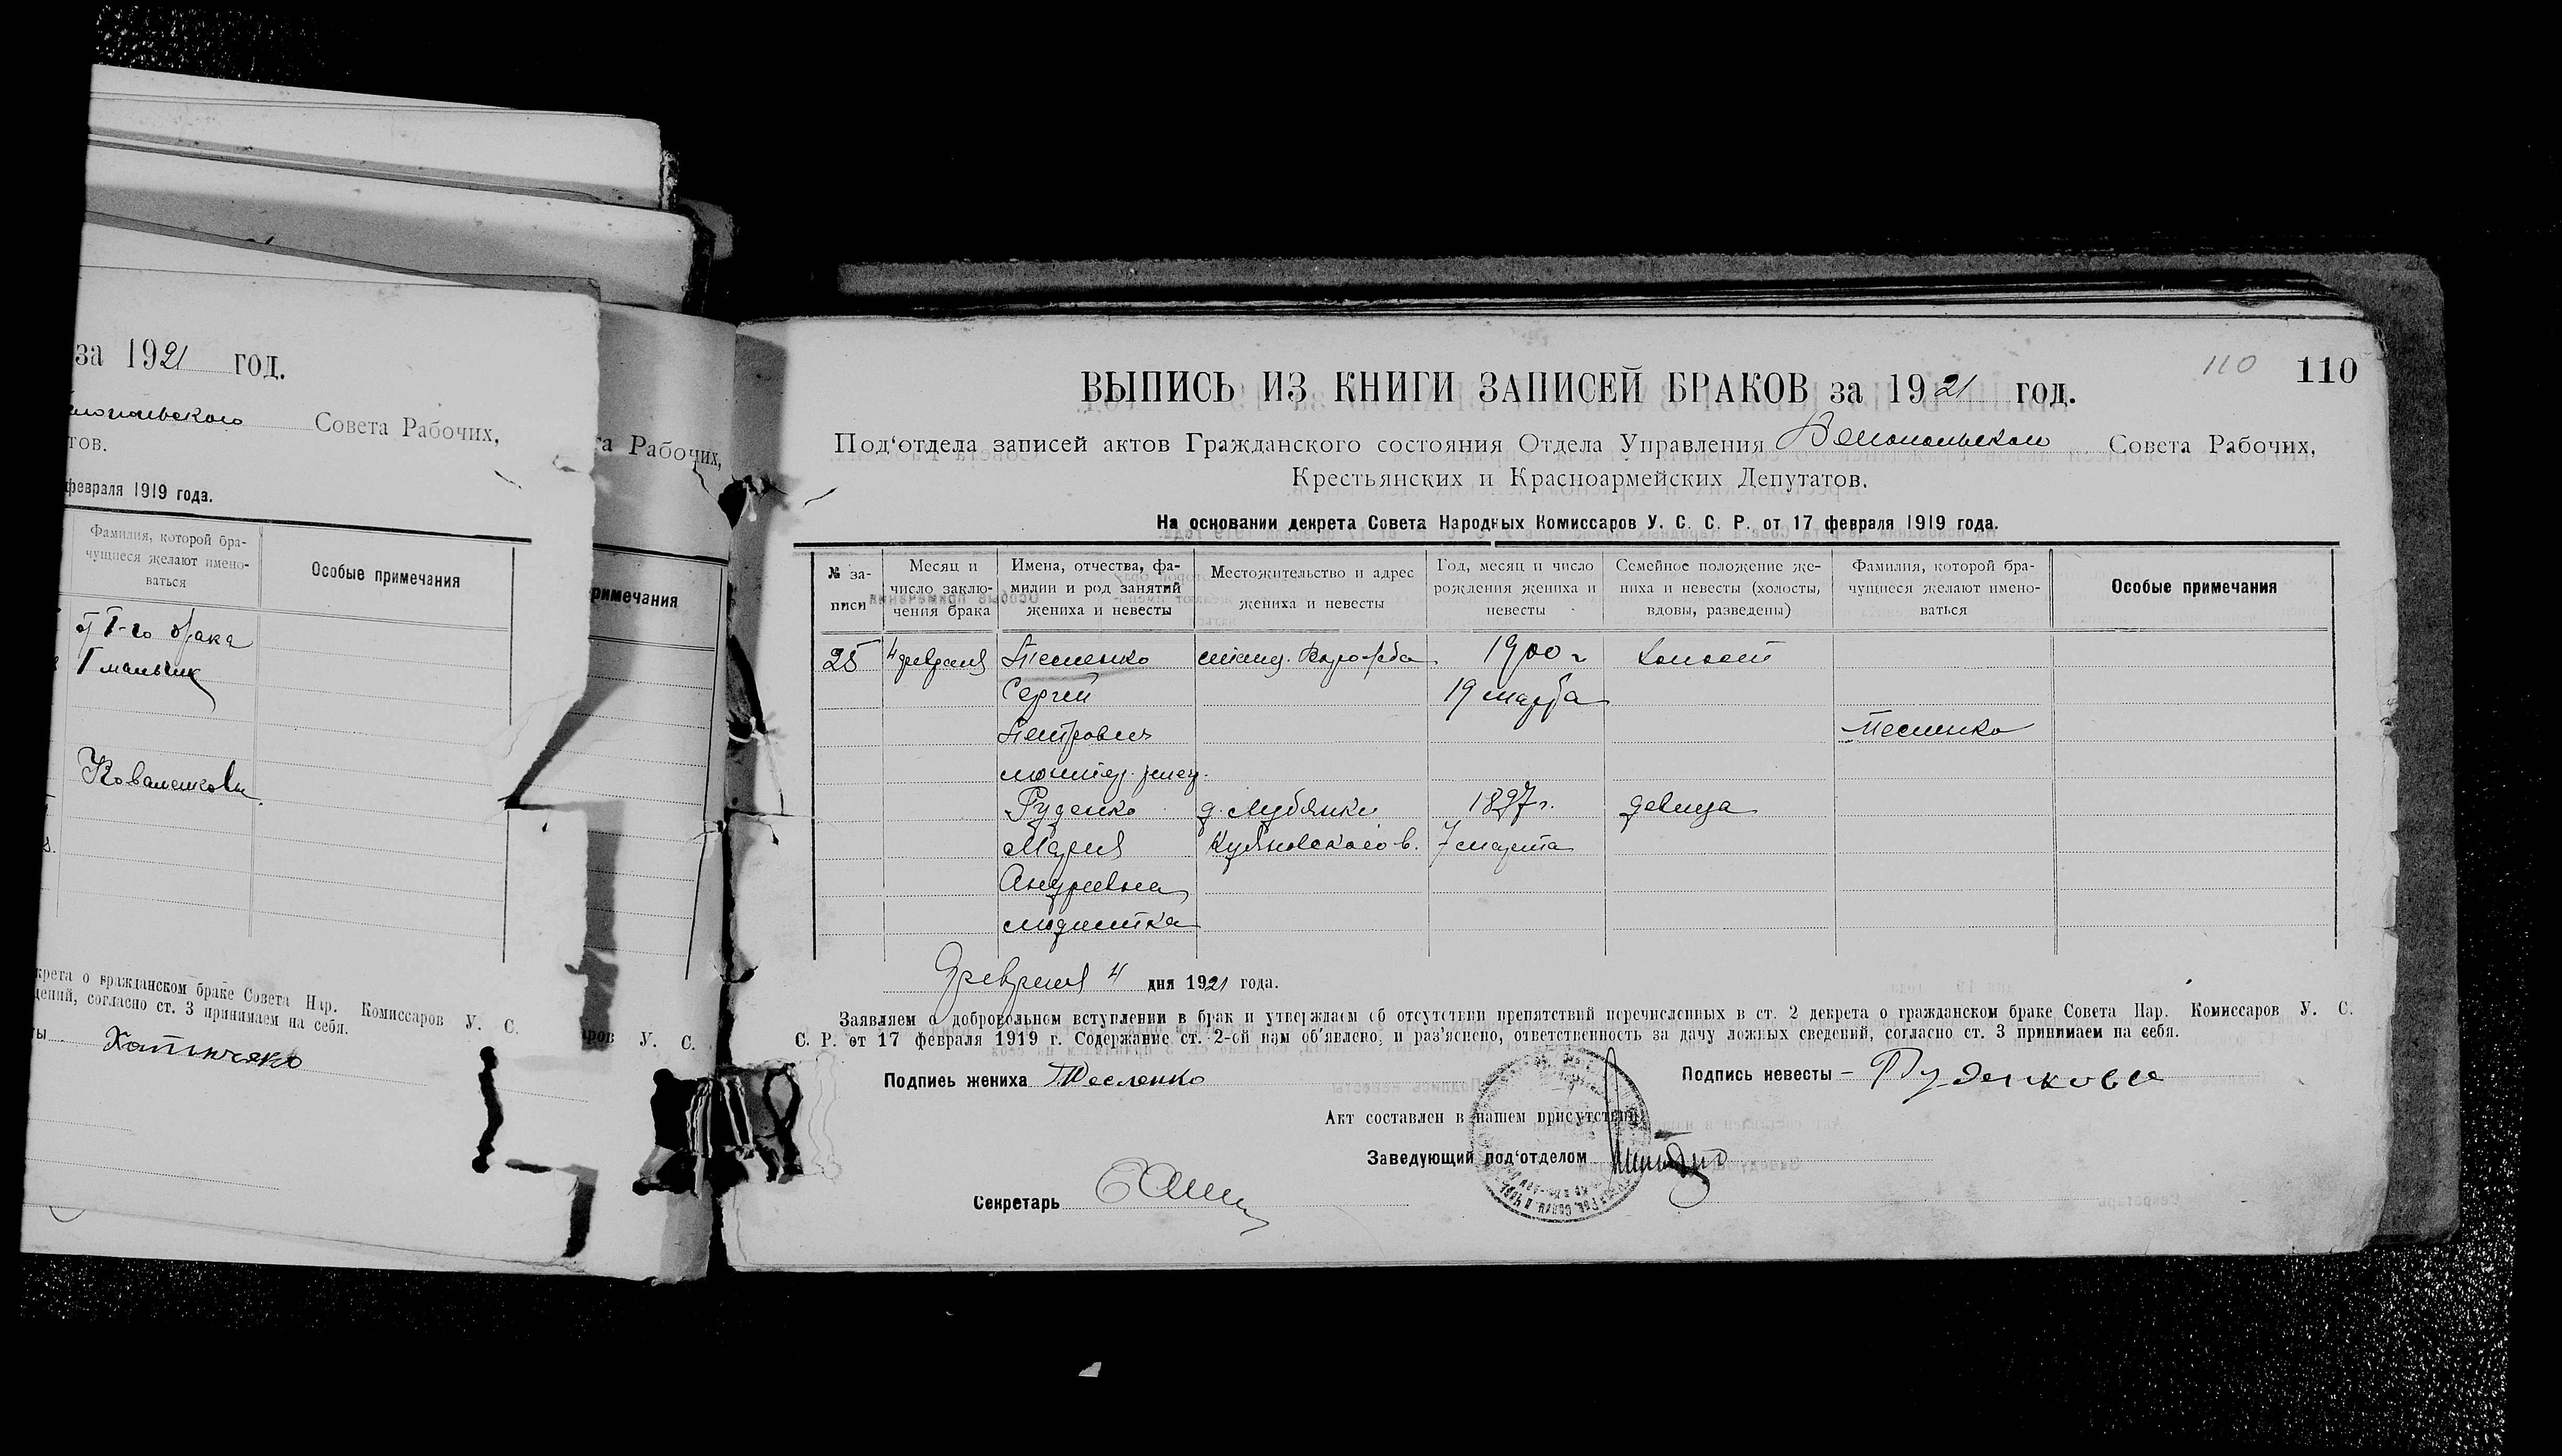 за 1921 год.
Совета Рабочих,
тов.
февраля 1919 года.
Фамилия, которой бра-
чущиеся желают имено-
ваться
Особые примечания
от I-го брака
1 мальчик
Коваленковы.
крета о гражданском браке Совета Нар. Комиссаров У. С.
дений, согласно ст. 3 принимаем на себя.
та Рабочих,
римечания
ров У. С.
110 110
ВЫПИСЬ ИЗ КНИГИ ЗАПИСЕЙ БРАКОВ за 1921 год.
Под‘отдела записей актов Гражданского состояния Отдела Управления Совета Рабочих,
Крестьянских и Красноармейских Депутатов.
На основании декрета Совета Народных Комиссаров У. С. С. Р. от 17 февраля 1919 года.
№ за-
писи
Месяц и
число заклю-
чения брака
Имена, отчества, фа-
милии и род занятий
жениха и невесты
Местожительство и адрес
жениха и невесты
Год, месяц и число
рождения жениха и
невесты
Семейное положение же-
ниха и невесты (холосты,
вдовы, разведены)
Фамилия, которой бра-
чущиеся желают имено-
ваться
Особые примечания
25 4 февраля Тесленко станц. Ворожба 1900 г. холост
Сергей 19 марта
Петрович Тесленко
Руденко д. Лубянки 1897 г. девица
Мария 7 марта
Андреевна
модистка
Февраля 4 дня 1921 года.
Заявляем о добровольном вступлении в брак и утверждаем об отсутствии препятствий перечисленных в ст. 2 декрета о гражданском браке Совета Нар. Комиссаров У. С.
С. Р. от 17 февраля 1919 г. Содержание ст. 2-ой нам об‘явлено, и раз‘яснено, ответственность за дачу ложных сведений, согласно ст. 3 принимаем на себя.
Подпись жениха Тесленко Подпись невесты – Руденкова
Акт составлен в нашем присутствии
Заведующий под‘отделом
Секретарь